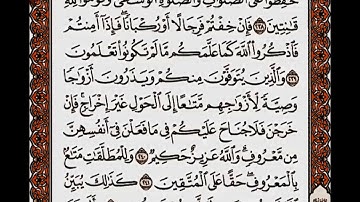 حَٰفِظُوا۟ عَلَى ٱلصَّلَوَٰتِ وَٱلصَّلَوٰةِ ٱلْوُسْطَىٰ وَقُومُوا۟ لِلَّهِ
قَٰنِتِينَ ٢٣٨ فَإِنْ خِفْتُمْ فَرِجَالًا أَوْ رُكْبَانًا فَإِذَآ أَمِنتُمْ
فَٱذْكُرُوا۟ ٱللَّهَ كَمَا عَلَّمَكُم مَّا لَمْ تَكُونُوا۟ تَعْلَمُونَ
٢٣٩ وَٱلَّذِينَ يُتَوَفَّوْنَ مِنكُمْ وَيَذَرُونَ أَزْوَٰجًا
وَصِيَّةً لِّأَزْوَٰجِهِم مَّتَٰعًا إِلَى ٱلْحَوْلِ غَيْرَ إِخْرَاجٍ فَإِنْ
خَرَجْنَ فَلَا جُنَاحَ عَلَيْكُمْ فِى مَا فَعَلْنَ فِىٓ أَنفُسِهِنَّ
مِن مَّعْرُوفٍ وَٱللَّهُ عَزِيزٌ حَكِيمٌ ٢٤٠ وَلِلْمُطَلَّقَٰتِ مَتَٰعٌۢ
بِٱلْمَعْرُوفِ حَقًّا عَلَى ٱلْمُتَّقِينَ ٢٤١ كَذَٰلِكَ يُبَيِّنُ